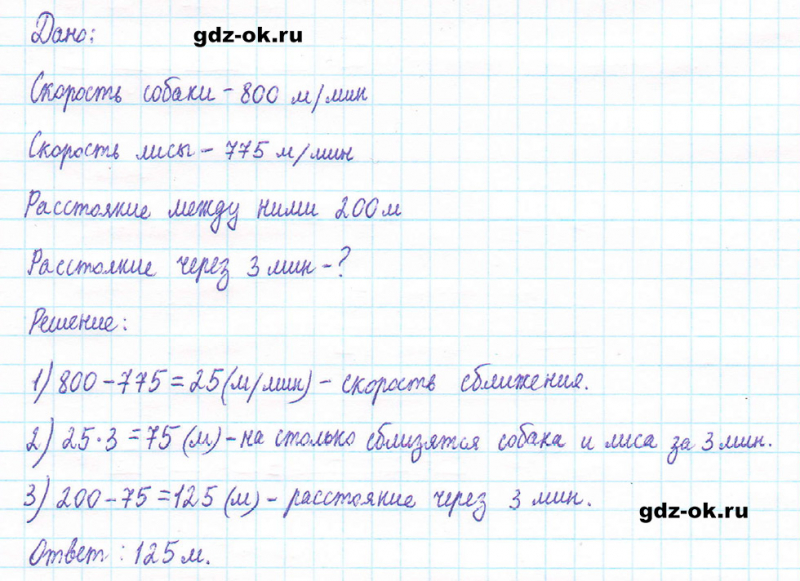 Дано:
gdz-ok.ru
Скорость собаки - 800 м/мин
Скорость лисы - 775 м/мин
Расстояние между ними 200м
Расстояние через 3 мин - ?
Решение:
1) 800 - 775 = 25 (м/мин) - скорость сближения.
2) 25 · 3 = 75 (м) - на столько сблизятся собака и лиса за 3 мин.
3) 200 - 75 = 125 (м) - расстояние через 3 мин.
gdz-ok.ru
Ответ : 125 м.